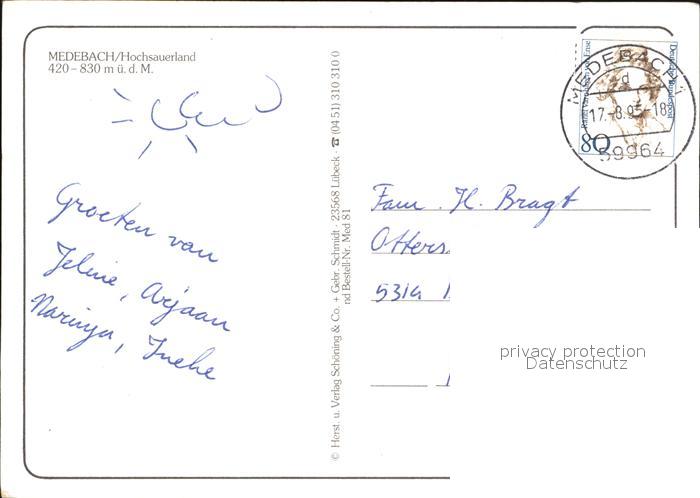 MEDEBACH/Hochsauerland
420 – 830 m ü. d. M.
Groeten van
Jeline, Arjaan
Marinya, Ineke
© Herst. u. Verlag Schöning & Co. + Gebr. Schmidt · 23568 Lübeck · ☎ (04 51) 310 310 0
nd Bestell-Nr. Med 81
MEDEBACH
d
17.-8.95-18
59964
80
Deutsche Bundespost
Fam. H. Bragt
Otters
5314
privacy protection
Datenschutz